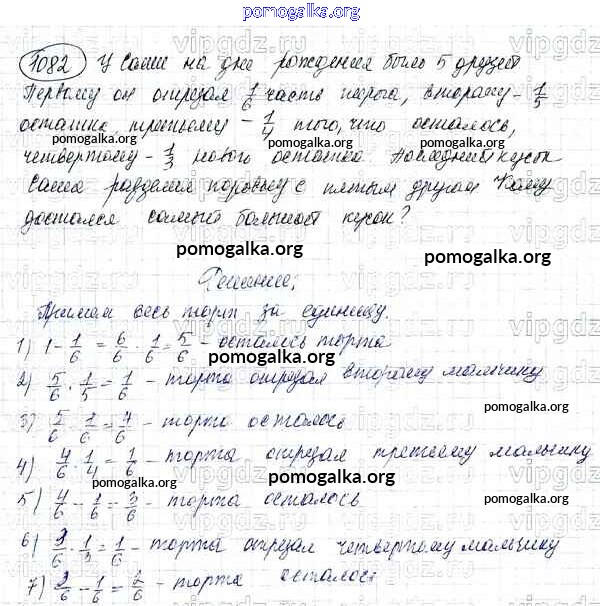 pomogalka.org
1082) У Саши на дне рождения было 5 друзей
Первому он отрезал 1/6 часть пирога, второму - 1/5
остатка, третьему - 1/4 того, что осталось,
четвертому - 1/3 нового остатка. Последний кусок
Саша разделил поровну с пятым другом Кому
достался самый большой кусок?
pomogalka.org pomogalka.org
Решение:
Примем весь торт за единицу.
1) 1 - 1/6 = 6/6 - 1/6 = 5/6 - осталось торта
pomogalka.org
2) 5/6 · 1/5 = 1/6 - торта отрезал второму мальчику
pomogalka.org
3) 5/6 - 1/6 = 4/6 - торта осталось
4) 4/6 · 1/4 = 1/6 - торта отрезал третьему мальчику
pomogalka.org
5) 4/6 - 1/6 = 3/6 - торта осталось
pomogalka.org
6) 3/6 · 1/3 = 1/6 - торта отрезал четвертому мальчику
7) 3/6 - 1/6 = 2/6 - торта осталост
pomogalka.org